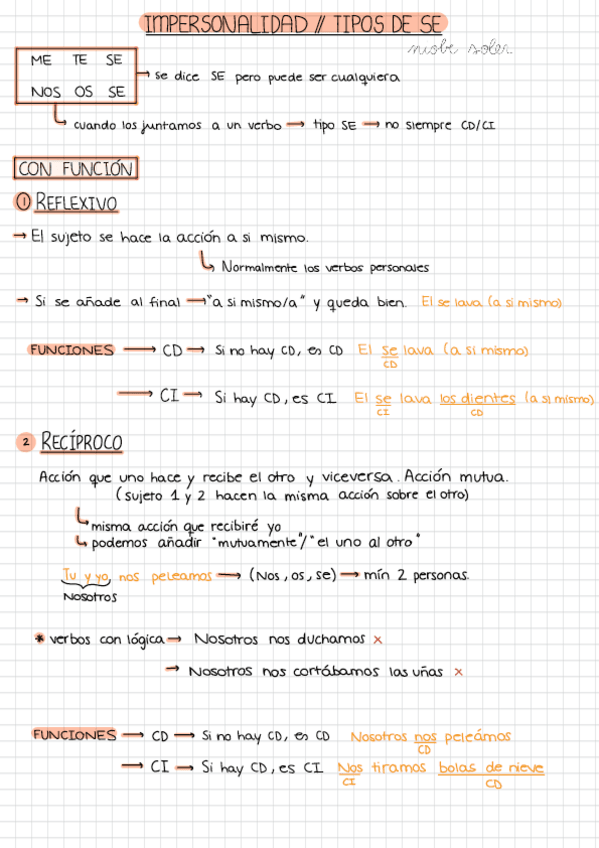 IMPERSONALIDAD // TIPOS DE SE
niobe soler.
ME TE SE
NOS OS SE
→ se dice SE pero puede ser cualquiera
↳ cuando los juntamos a un verbo → tipo SE → no siempre CD/CI
CON FUNCIÓN
① REFLEXIVO
→ El sujeto se hace la acción a si mismo.
↳ Normalmente los verbos personales
→ Si se añade al final → "a si mismo/a" y queda bien. El se lava (a si mismo)
FUNCIONES → CD → Si no hay CD, es CD El se lava (a si mismo)
CD
→ CI → Si hay CD, es CI El se lava los dientes (a si mismo)
CI CD
2 RECÍPROCO
Acción que uno hace y recibe el otro y viceversa. Acción mutua.
(sujeto 1 y 2 hacen la misma acción sobre el otro)
↳ misma acción que recibiré yo
↳ podemos añadir "mutuamente"/"el uno al otro"
Tu y yo, nos peleamos → (Nos, os, se) → mín 2 personas.
Nosotros
* verbos con lógica → Nosotros nos duchamos x
→ Nosotros nos cortábamos las uñas x
FUNCIONES → CD → Si no hay CD, es CD Nosotros nos peleámos
CD
→ CI → Si hay CD, es CI Nos tiramos bolas de nieve
CI CD